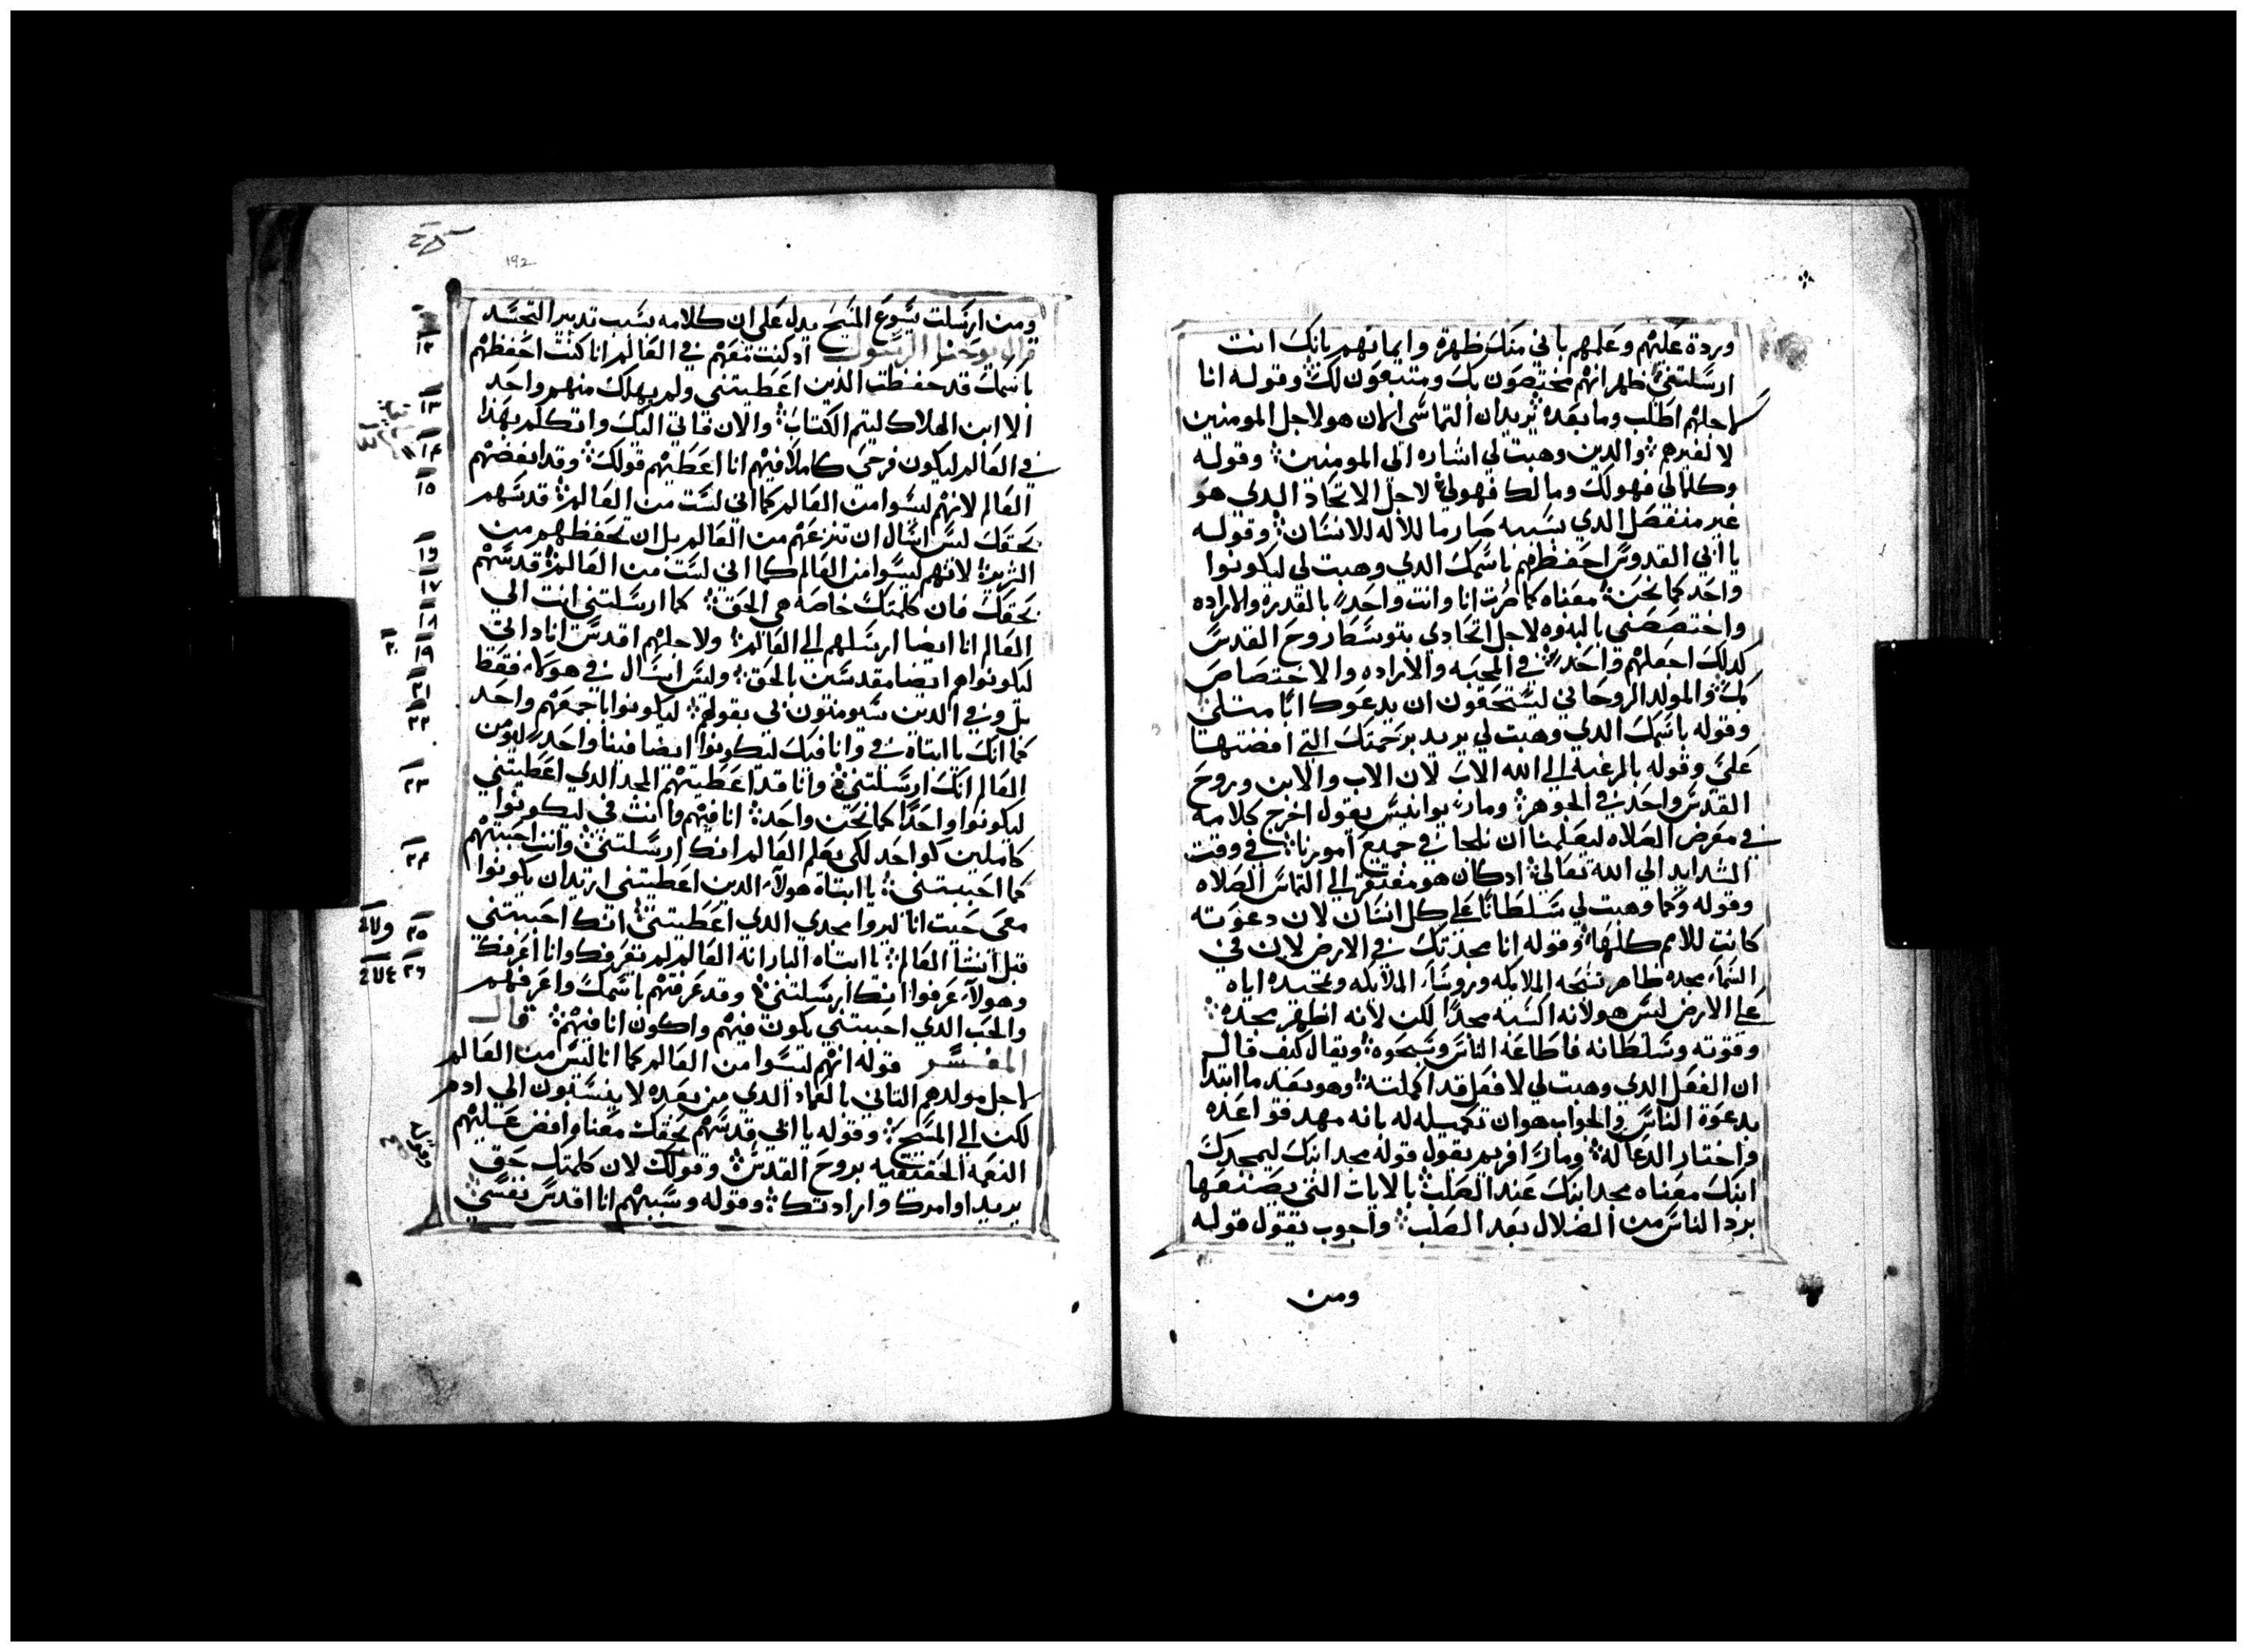 وبردة عليهم وعلمهم باني منك ظهرة وايمانهم بانك انت
ارسلتني ظهر انهم مختصون بك ومتبعون لك وقوله انا
لاجلهم اطلب وما بعده يريد ان التماسي الان هو لاجل المومنين
لا لغيرهم والدين وهبت لي اشاره الي المومنين وقوله
وكلما لي فهو لك وما لك فهو لي لاجل الاتحاد الدي هو
غير منفصل الدي بسببه صار ما للاله للانسان وقوله
يا ابي القدوس احفظهم باسمك الدي وهبت لي ليكونوا
واحد كما نحن معناه كما صرت انا وانت واحد بالقدرة والاراده
واختصصني بالبنوه لاجل اتحادي بتوسط روح القدس
كدلك اجعلهم واحد في المحبه والاراده والاختصاص
بك والمولد الروحاني ليستحقون ان يدعوك ابا مثلي
وقوله باسمك الدي وهبت لي يريد برحمتك التي افضتها
علي وقوله بالرغبة الي الله الاب لان الاب والابن وروح
القدس واحد في الجوهر ومار يوانيس يقول اخرج كلامه
في معرض الصلاه ليعلمنا ان نلجا في جميع امورنا في وقت
الشدايد الي الله تعالي ادكان هو مفتقر الي التماس الصلاه
وقوله وكما وهبت لي سلطانا علي كل انسان لان دعوته
كانت للامم كلها وقوله انا مجدتك في الارض لان في
السماء مجده ظاهر تسبحه الملايكه وروسا الملايكه وتمجيده اياه
علي الارض ليس هو لانه اكسبه مجدا لكن لانه اظهر مجده
وقوته وسلطانه فاطاعه الناس وسبحوه ويقال كيف قال
ان الفعل الدي وهبت لي لافعل قد اكملته وهو بعد ما ابتدا
بدعوة الناس والجواب هو ان تكميله له بانه مهد قواعده
واختار الدعا له ومار افريم يقول قوله مجد ابنك ليمجدك
ابنك معناه مجد ابنك عند الصلب بالايات التي يصنعها
برد الناس من الضلال بعد الصلب واجوب يقول قوله
ومن
192
ومن ارسلت يسوع المسيح يدل علي ان كلامه بسبب تدبير التجسد
قال يوحنا الرسول ادكنت معهم في العالم انا كنت احفظهم
باسمك قد حفظت الدين اعطيتني ولم يهلك منهم واحد
الا ابن الهلاك ليتم الكتاب والان فاتي اليك واتكلم بهدا
في العالم ليكون فرحي كاملا فيهم انا اعطيتهم قولك وقد ابغضهم
العالم لانهم ليسوا من العالم كما اني لست من العالم قدسهم
بحقك ليس اسال ان تنزعهم من العالم بل ان تحفظهم من
الشرير لانهم ليسوا من العالم كما اني لست من العالم قدسهم
بحقك فان كلمتك خاصه هي الحق كما ارسلتني انت الي
العالم انا ايضا ارسلهم الي العالم ولاجلهم اقدس انا داتي
ليكونوا هم ايضا مقدسين بالحق وليس اسال في هولاء فقط
بل وفي الدين سيومنون بي بقولهم ليكونوا باجمعهم واحد
كما انك يا ابتاه في وانا فيك ليكونوا ايضا فينا واحد ليومن
العالم انك ارسلتني وانا قد اعطيتهم المجد الدي اعطيتني
ليكونوا واحدا كما نحن واحد انا فيهم وانت في ليكونوا
كاملين كواحد لكي يعلم العالم انك ارسلتني وانت احببتهم
كما احببتني يا ابتاه هولاء الدين اعطيتني اريد ان يكونوا
معي حيت انا ليروا مجدي الدي اعطيتني انك احببتني
قبل انشا العالم يا ابتاه البار انه العالم لم يعرفك وانا اعرفك
وهولاء عرفوا انك ارسلتني وقد عرفتهم باسمك واعرفهم
والحب الدي احببتني يكون فيهم واكون انا فيهم قال
المفسر قوله انهم ليسوا من العالم كما انا ليس من العالم
لاجل مولدهم التاني بالعماد الدي من بعده لا ينسبون الي ادم
لكن الي المسيح وقوله يا ابي قدسهم بحقك معناه افض عليهم
النعمه الحقيقيه بروح القدس وقولك لان كلمتك حق
يريد اوامرك وارادتك وقوله وبسببهم انا اقدس نفسي
١٢
١٣
١٤
١٥
١٦
١٧
١٨
١٩
٢٠
٢١
٢٢
٢٣
٢٤
٢٥
٢٦